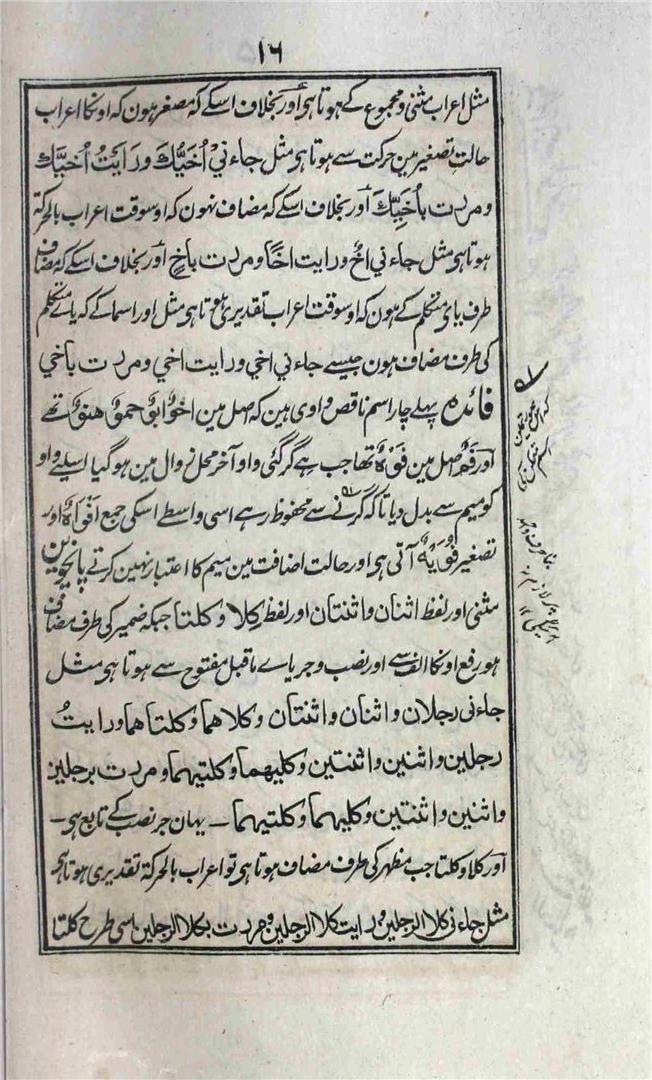 ۱۶
مثل اعراب مثنی و مجموع کے ہوتا ہی اور بخلاف اسکے کہ مصغر ہون کہ اونکا اعراب
حالت تصغیر مین حرکت سے ہوتا ہی مثل جاءنيْ اُخَيُّكَ ورَايَتُ اُخَيَّكَ
ومررت باُخَيِّكَ اور بخلاف اسکے کہ مضاف نہون کہ اوسوقت اعراب بالحرکۃ
ہوتا ہی مثل جاءني اخٌ ورايت اخًا ومررت باخٍ اور بخلاف اسکے کہ مضاف
طرف یای متکلم کے ہون کہ اوسوقت اعراب تقدیری ہوتا ہی مثل اور اسما کے کہ یائے متکلم
کی طرف مضاف ہون جیسے جاءني اخي ورايت اخي ومررت باخي
فائدہ پہلے چار اسم ناقص واوی ہین کہ اصل مین اخوٌ ابوٌ حموٌ ھنوٌ تھے
اور فم اصل مین فَوَہٌ تھا جب ہے گر گئی واو آخر محل زوال مین ہو گیا اسلیے واو
کو میم سے بدل دیا تاکہ گرنے سے محفوظ رہے اسی واسطے اسکی جمع اَفْوَاہٌ اور
تصغیر فُوَیْہٌ آتی ہی اور حالت اضافت مین میم کا اعتبار نہین کرتے پانچوین
مثنی اور لفظ اثنان واثنتان اور لفظ کِلا وکلتا جبکہ ضمیر کی طرف مضاف
ہو رفع اونکا الف سے اور نصب و جر یاے ماقبل مفتوح سے ہوتا ہی مثل
جاءنی رجلان واثنان واثنتان وکلاهما وکلتاهما ورايتُ
رجلين واثنين واثنتين وكليهما وكلتيهما ومررت برجلين
واثنين واثنتين وكليهما وكلتيهما ـ یہان جر نصب کے تابع ہی ـ
اور کلا و کلتا جب مظہر کی طرف مضاف ہوتا ہی تو اعراب بالحرکۃ تقدیری ہوتا ہی
مثل جاءنی کلا الرجلین ورایت کلا الرجلین ومررت بکلا الرجلین اسی طرح کلتا